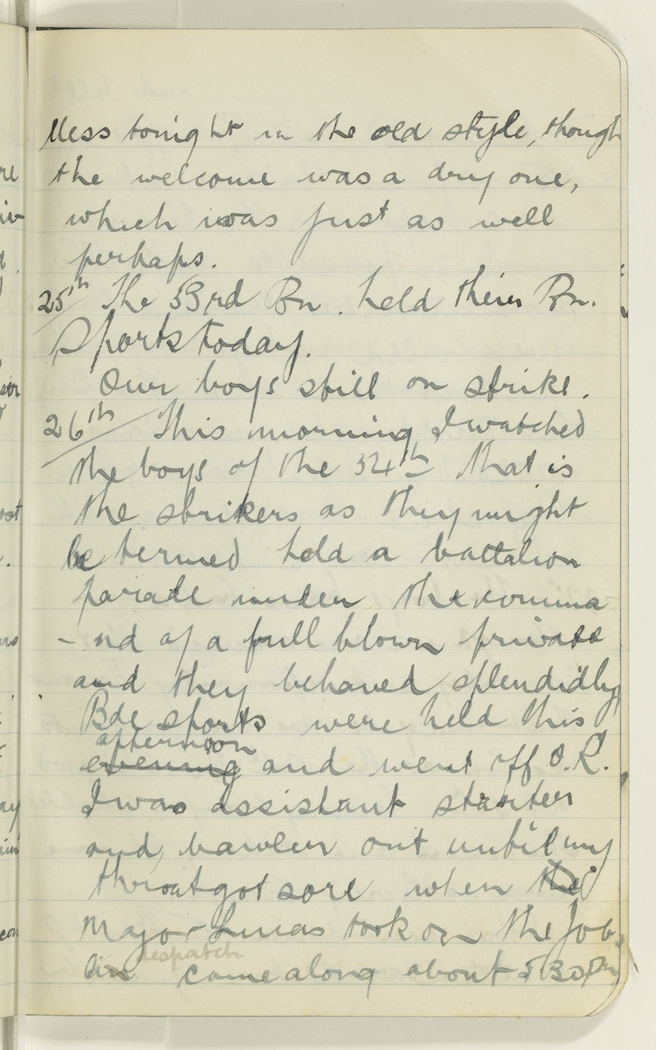 Mess tonight in the old style, though
the welcome was a dry one,
which was just as well
perhaps.
25th The 53rd Bn. held their Bn.
Sports today.
Our boys still on strike.
26th This morning I watched
the boys of the 54th that is
the strikers as they might
be termed hold a battalion
parade under the comma
- nd of a full blown private
and they behaved splendidly
Bde sports were held this
afternoon
evening and went off O.K.
I was assistant starter
and bawler out until my
throat got sore when
Major Lucas took on the job.
despatch
An came along about 5.30 pm